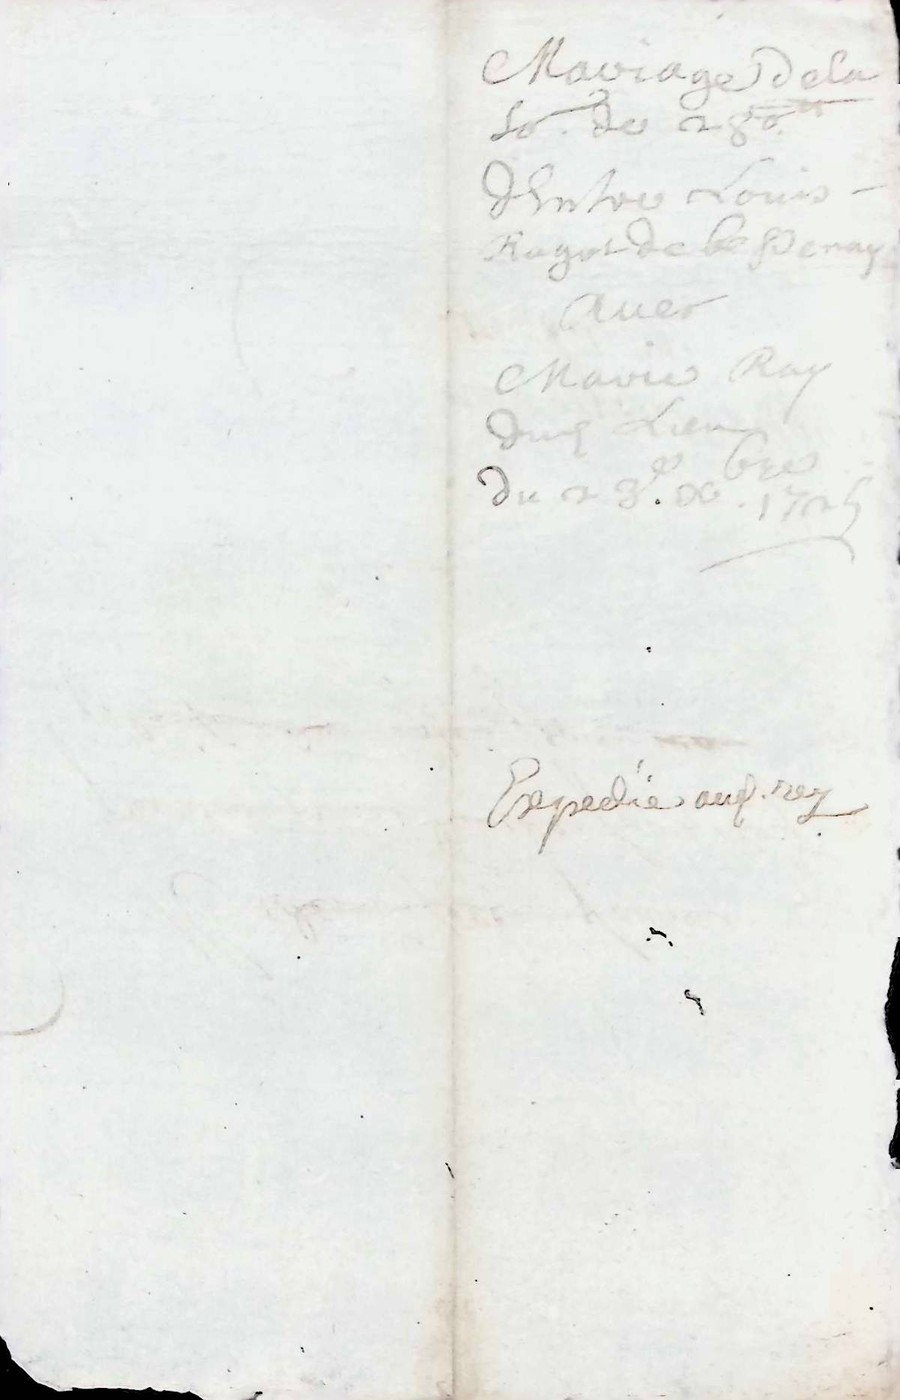 Mariage De La
So. de 280.ᵗᵗ
D'Entre Louis –
Ragot de Peray
Auec
Marie Ray
dud Lieu
Du 23.ᵉ Xbre 1725
Expedié aud. rey